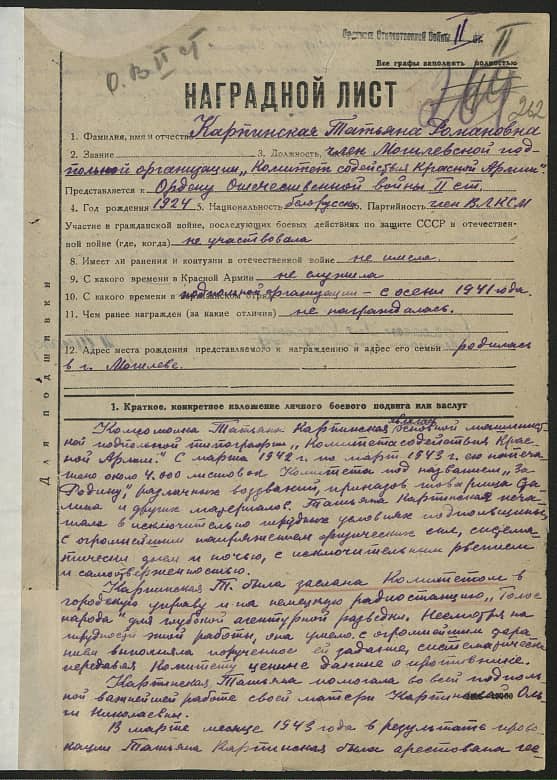 Орденом Отечественной Войны II ст.
II
О.В. II ст
Все графы заполнить полностью
262
НАГРАДНОЙ ЛИСТ
1. Фамилия, имя и отчество Карпинская Татьяна Романовна
2. Звание 3. Должность, член Могилевской под-
польной организации „Комитет содействия Красной Армии".
Представляется к Ордену Отечественной войны II ст.
4. Год рождения 1924 5. Национальность белорусска 6. Партийность член ВЛКСМ
Участие в гражданской войне, последующих боевых действиях по защите СССР и отечествен-
ной войне (где, когда) не участвовала
8. Имеет ли ранения и контузии в отечественной войне не имела.
9. С какого времени в Красной Армии не служила
10. С какого времени в подпольной организации – с осени 1941 года.
11. Чем ранее награжден (за какие отличия) не награждалась.
12. Адрес места рождения представляемого к награждению и адрес его семьи родилась
в г. Могилеве.
Для подшивки
1. Краткое, конкретное изложение личного боевого подвига или заслуг
Комсомолка Татьяна Карпинская являлась основной машинист
кой подпольной типографии „Комитета содействия Крас-
ной Армии." С марта 1942 г. по март 1943 г. ею напеча
тано около 4.000 листовок Комитета под названием „За
Родину," различных воззваний, приказов товарища Ста
лина и других материалов. Татьяна Карпинская печа-
тала в исключительно трудных условиях подпольщины,
с огромнейшим напряжением физических сил, система-
тически днем и ночью, с исключительным рвением
и самоотверженностью.
Карпинская Т. была заслана Комитетом в
городскую управу и на немецкую радиостанцию „Голос
народа" для глубокой агентурной разведки. Несмотря на
трудности этой работы, она умело, с огромнейшим
выполняла порученное ей задание, систематически
передавая Комитету ценные данные о противнике.
Карпинская Татьяна помогала во всей подполь
ной важнейшей работе своей матери Карпинской Оль
ги Николаевны.
В марте месяце 1943 года в результате прово-
кации Татьяна Карпинская была арестована гес